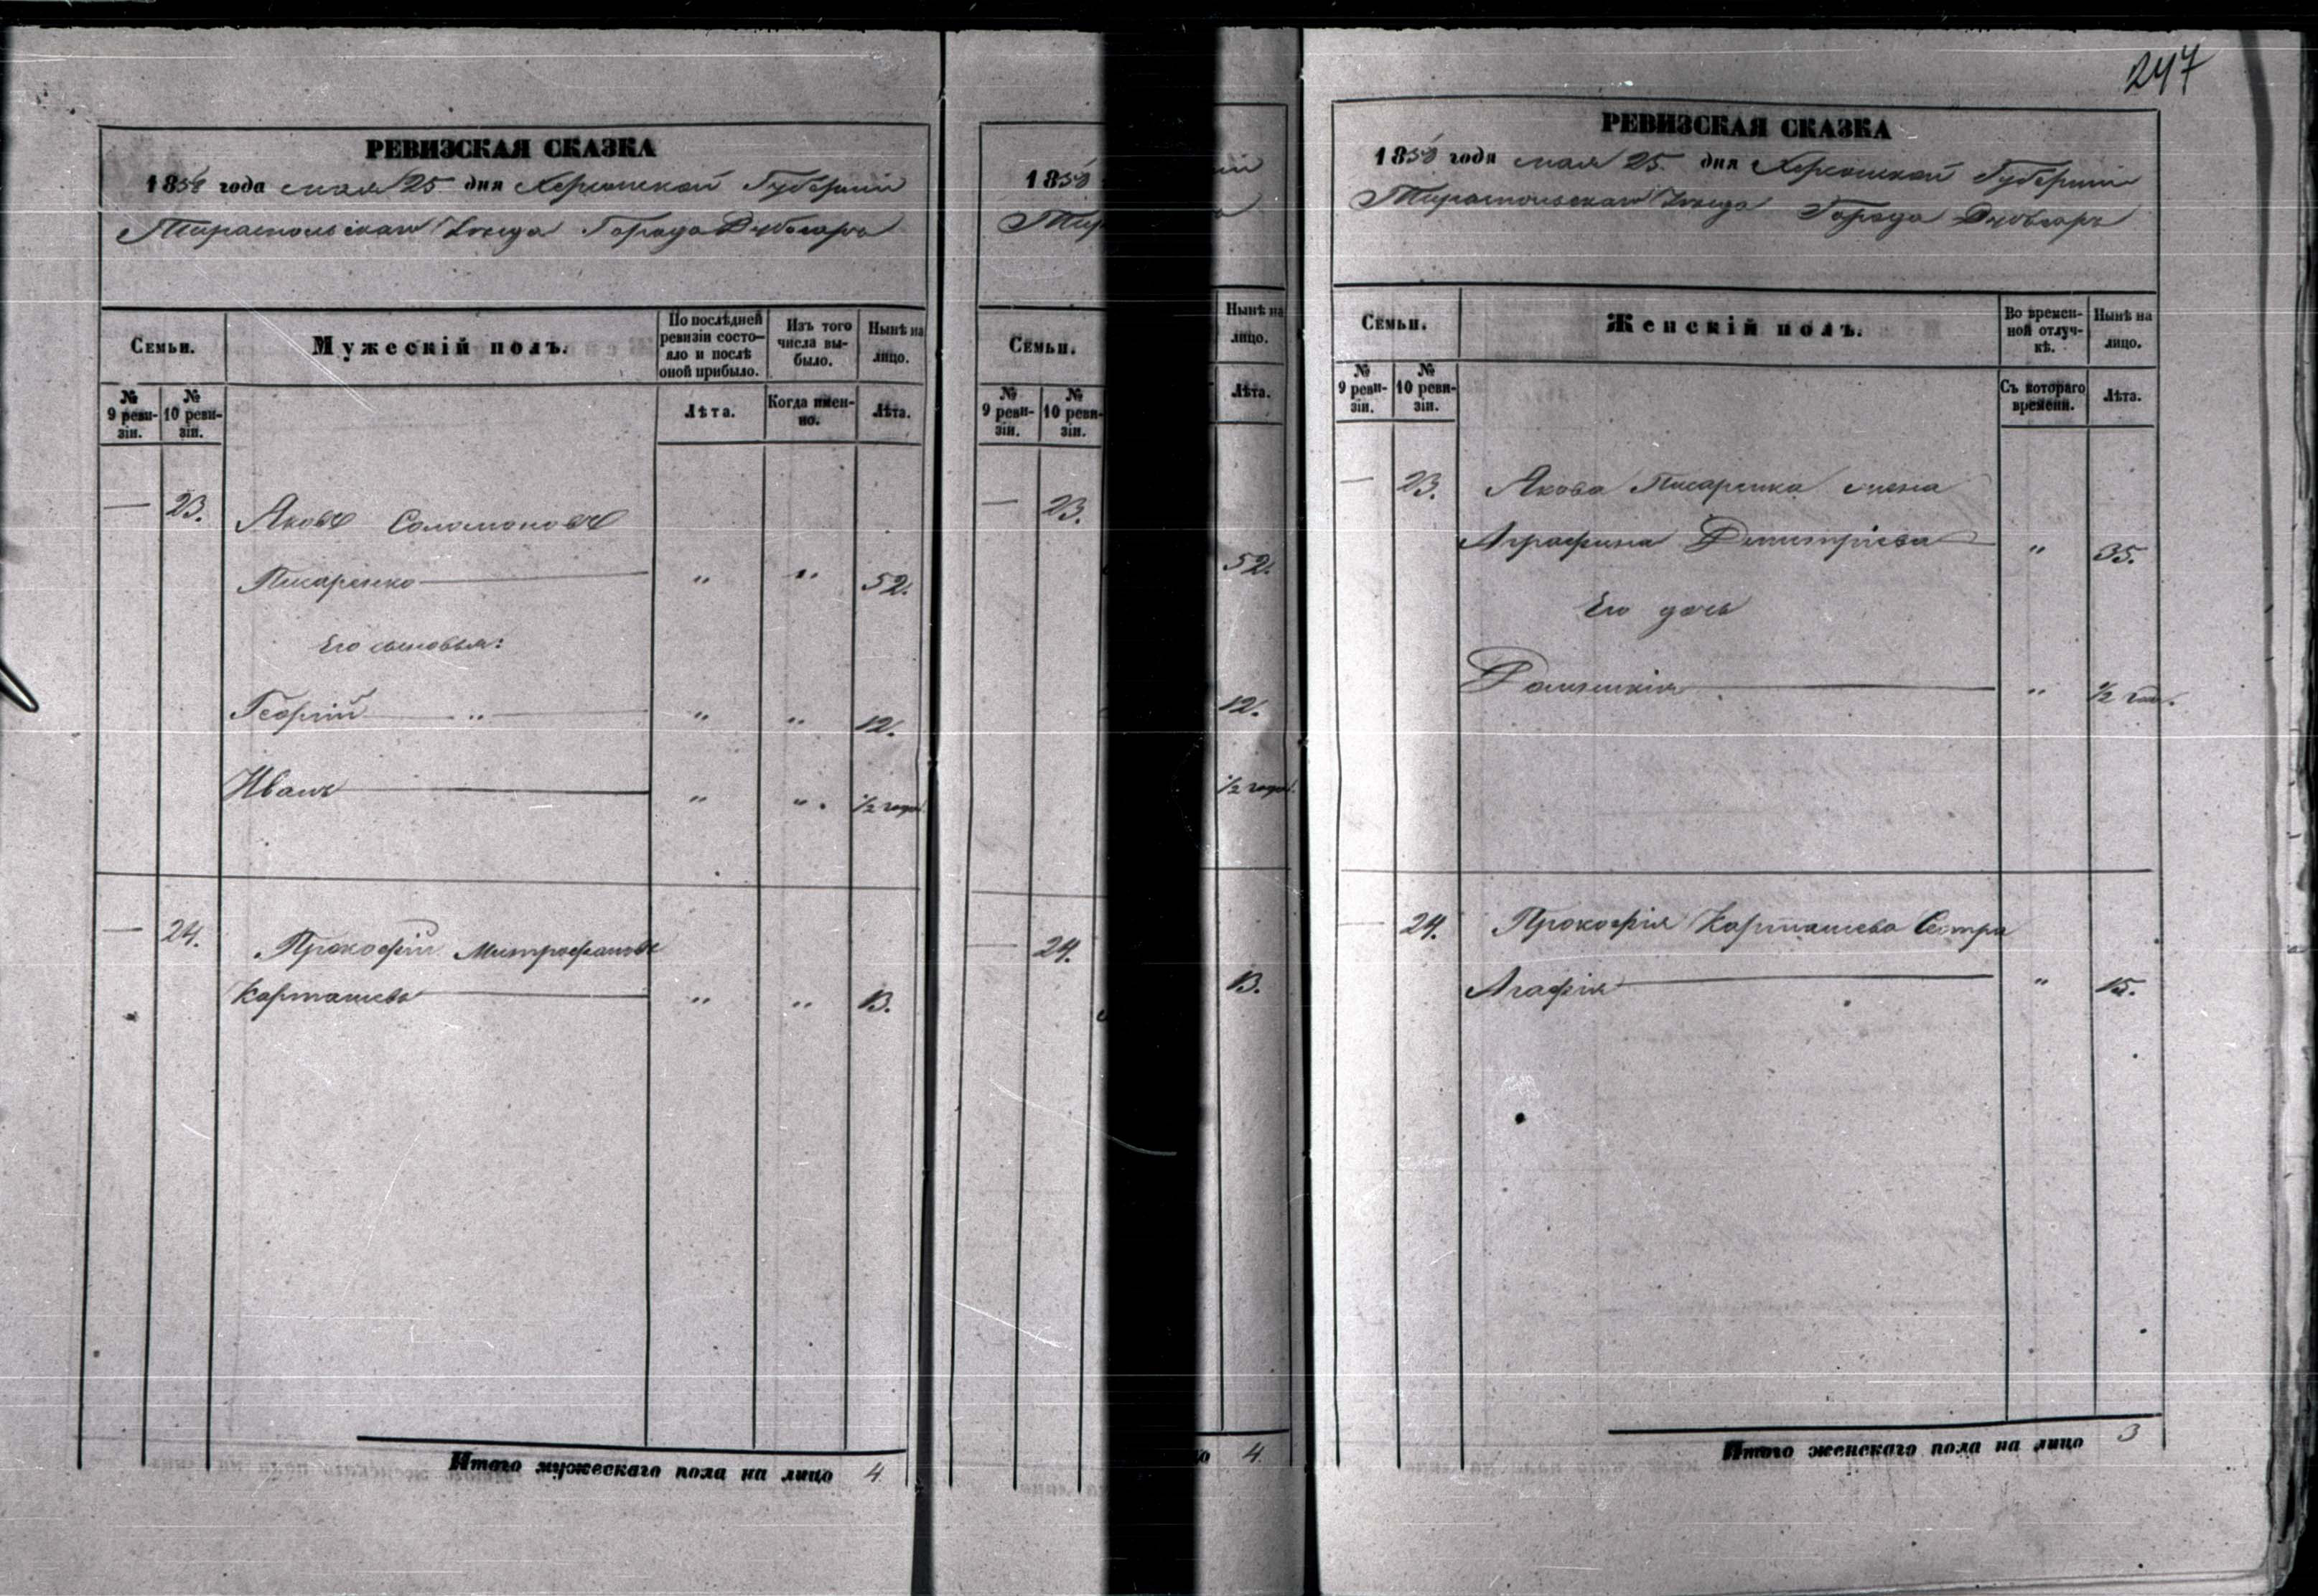 РЕВИЗСКАЯ СКАЗКА
1858 года мая 25 дня Херсонской Губернiи
Тираспольскаго Уезда Города Дубосаръ
Семьи.
Мужескiй полъ.
По послѣдней ревизiи состо-
яло и послѣ
оной прибыло.
Изъ того
числа вы-
было.
Нынѣ на
лицо.
№
9 реви-
зiи.
№
10 реви-
зiи.
Лѣта.
Когда имен-
но.
Лѣта.
— 23. Яковъ Соломоновъ
Писаренко " " 52.
Его сыновья:
Георгiй " " " 12.
Иванъ " " 1/2 года.
— 24. Прокофiй Митрофановъ
Карташевъ " " 13.
Итого мужескаго пола на лицо 4
1858
Семьи.
№
9 реви-
зiи.
№
10 реви-
зiи.
— 23.
— 24.
Нынѣ на
лицо.
Лѣта.
52.
12.
1/2 года.
13.
4
247
РЕВИЗСКАЯ СКАЗКА
1858 года мая 25 дня Херсонской Губернiи
Тираспольскаго Уезда Города Дубосаръ
Семьи.
Женскiй полъ.
Во времен-
ной отлуч-
кѣ.
Нынѣ на
лицо.
№
9 реви-
зiи.
№
10 реви-
зiи.
Съ котораго
времени.
Лѣта.
— 23. Якова Писаренка жена
Аграфина Димитрiева " 35.
Его дочь
" 1/2 год.
— 24. Прокофiя Карташева Сестра
Агафiя " 15.
Итого женскаго пола на лицо 3